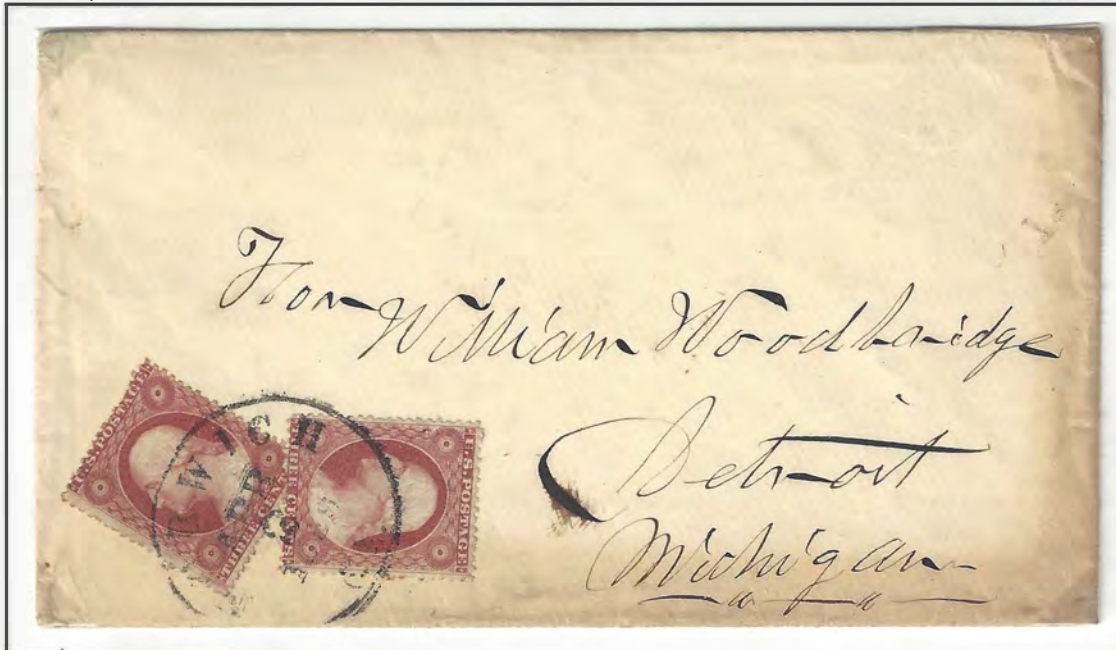 Hon
William Woodbridge
Detroit
Michigan
U.S. POSTAGE
THREE CENTS
U.S. POSTAGE
THREE CENTS
WICH
APR